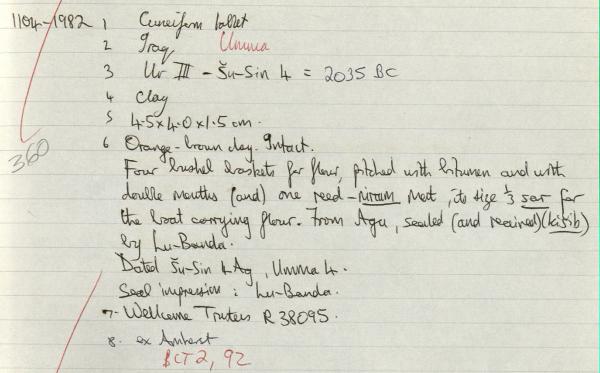 1104-1982 1 Cuneiform tablet
2 Iraq Umma
3 Ur III - Šu-Sin 4 = 2035 BC
4 Clay
5 4.5 x 4.0 x 1.5 cm.
360
6 Orange-brown clay. Intact.
Four bushel baskets for flour, pitched with bitumen and with
double mouths (and) one reed - mat, its size ⅓ sar for
the boat carrying flour. From Agu, sealed (and received) (kišib)
by Lu-Banda.
Dated Šu-Sin 4 Ag, Umma 4.
Seal impression: Lu-Banda.
7. Wellcome Trustees R 38095.
8. ex Amherst
BCT 2, 92